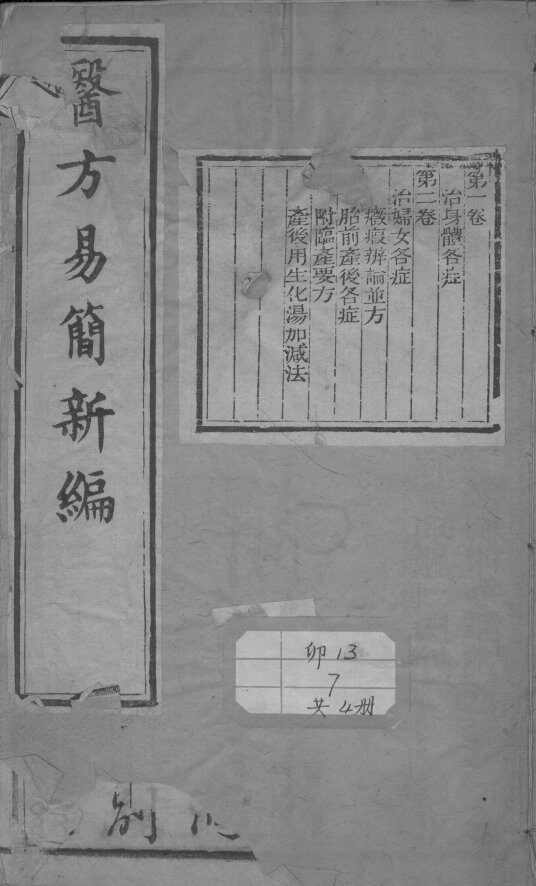 醫方易簡新編
第一卷
治身體各症
第二卷
治婦女各症
癥瘕辨論並方
胎前產後各症
附臨產要方
產後用生化湯加減法
卯13
7
共4册